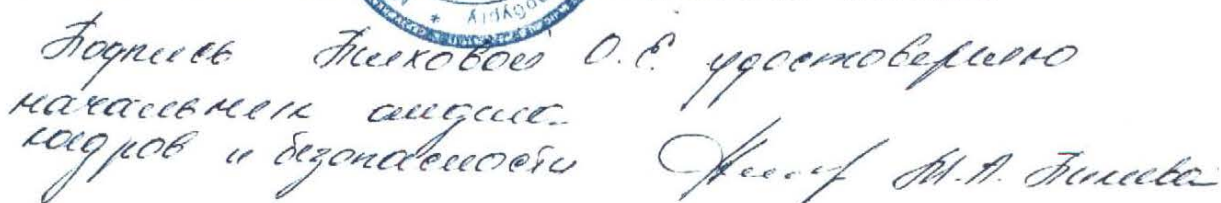 Подпись Пиховой О.Е. удостоверяю
начальник отдела
кадров и безопасности М.А.